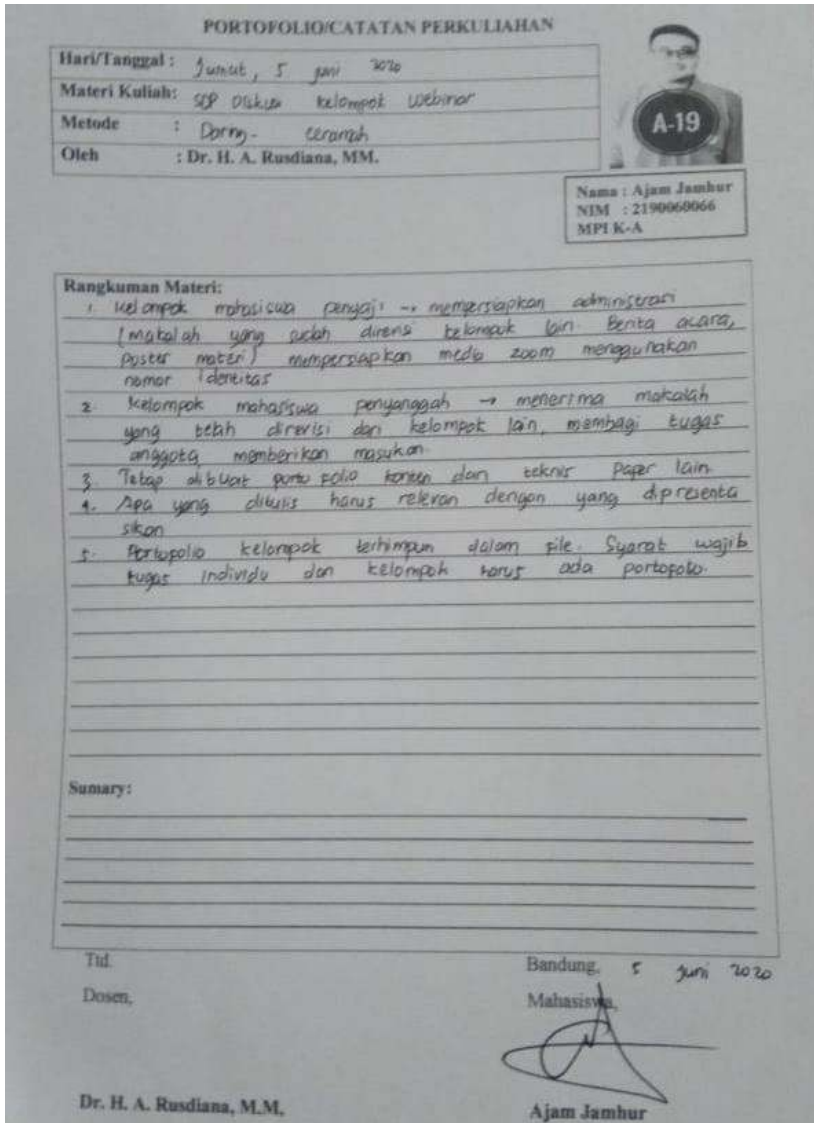 PORTOFOLIO/CATATAN PERKULIAHAN
Hari/Tanggal : Jumat, 5 juni 2020
Materi Kuliah: SOP Diskusi kelompok webinar
Metode : Daring - ceramah
Oleh : Dr. H. A. Rusdiana, MM.
A-19
Nama : Ajam Jamhur
NIM : 2190060066
MPI K-A
Rangkuman Materi:
1. Kelompok mahasiswa penyaji → mempersiapkan administrasi
(makalah yang sudah direvisi kelompok lain. Berita acara,
poster materi) mempersiapkan media zoom menggunakan
nomor identitas
2. Kelompok mahasiswa penyanggah → menerima makalah
yang telah direvisi dari kelompok lain, membagi tugas
anggota memberikan masukan.
3. Tetap dibuat porto folio konten dan teknis paper lain
4. Apa yang ditulis harus relevan dengan yang dipresenta
sikan
5. Portopolio kelompok terhimpun dalam file. Syarat wajib
tugas individu dan kelompok harus ada portopolio.
Sumary:
Ttd.
Bandung, 5 juni 2020
Dosen,
Mahasiswa,
Dr. H. A. Rusdiana, M.M,
Ajam Jamhur